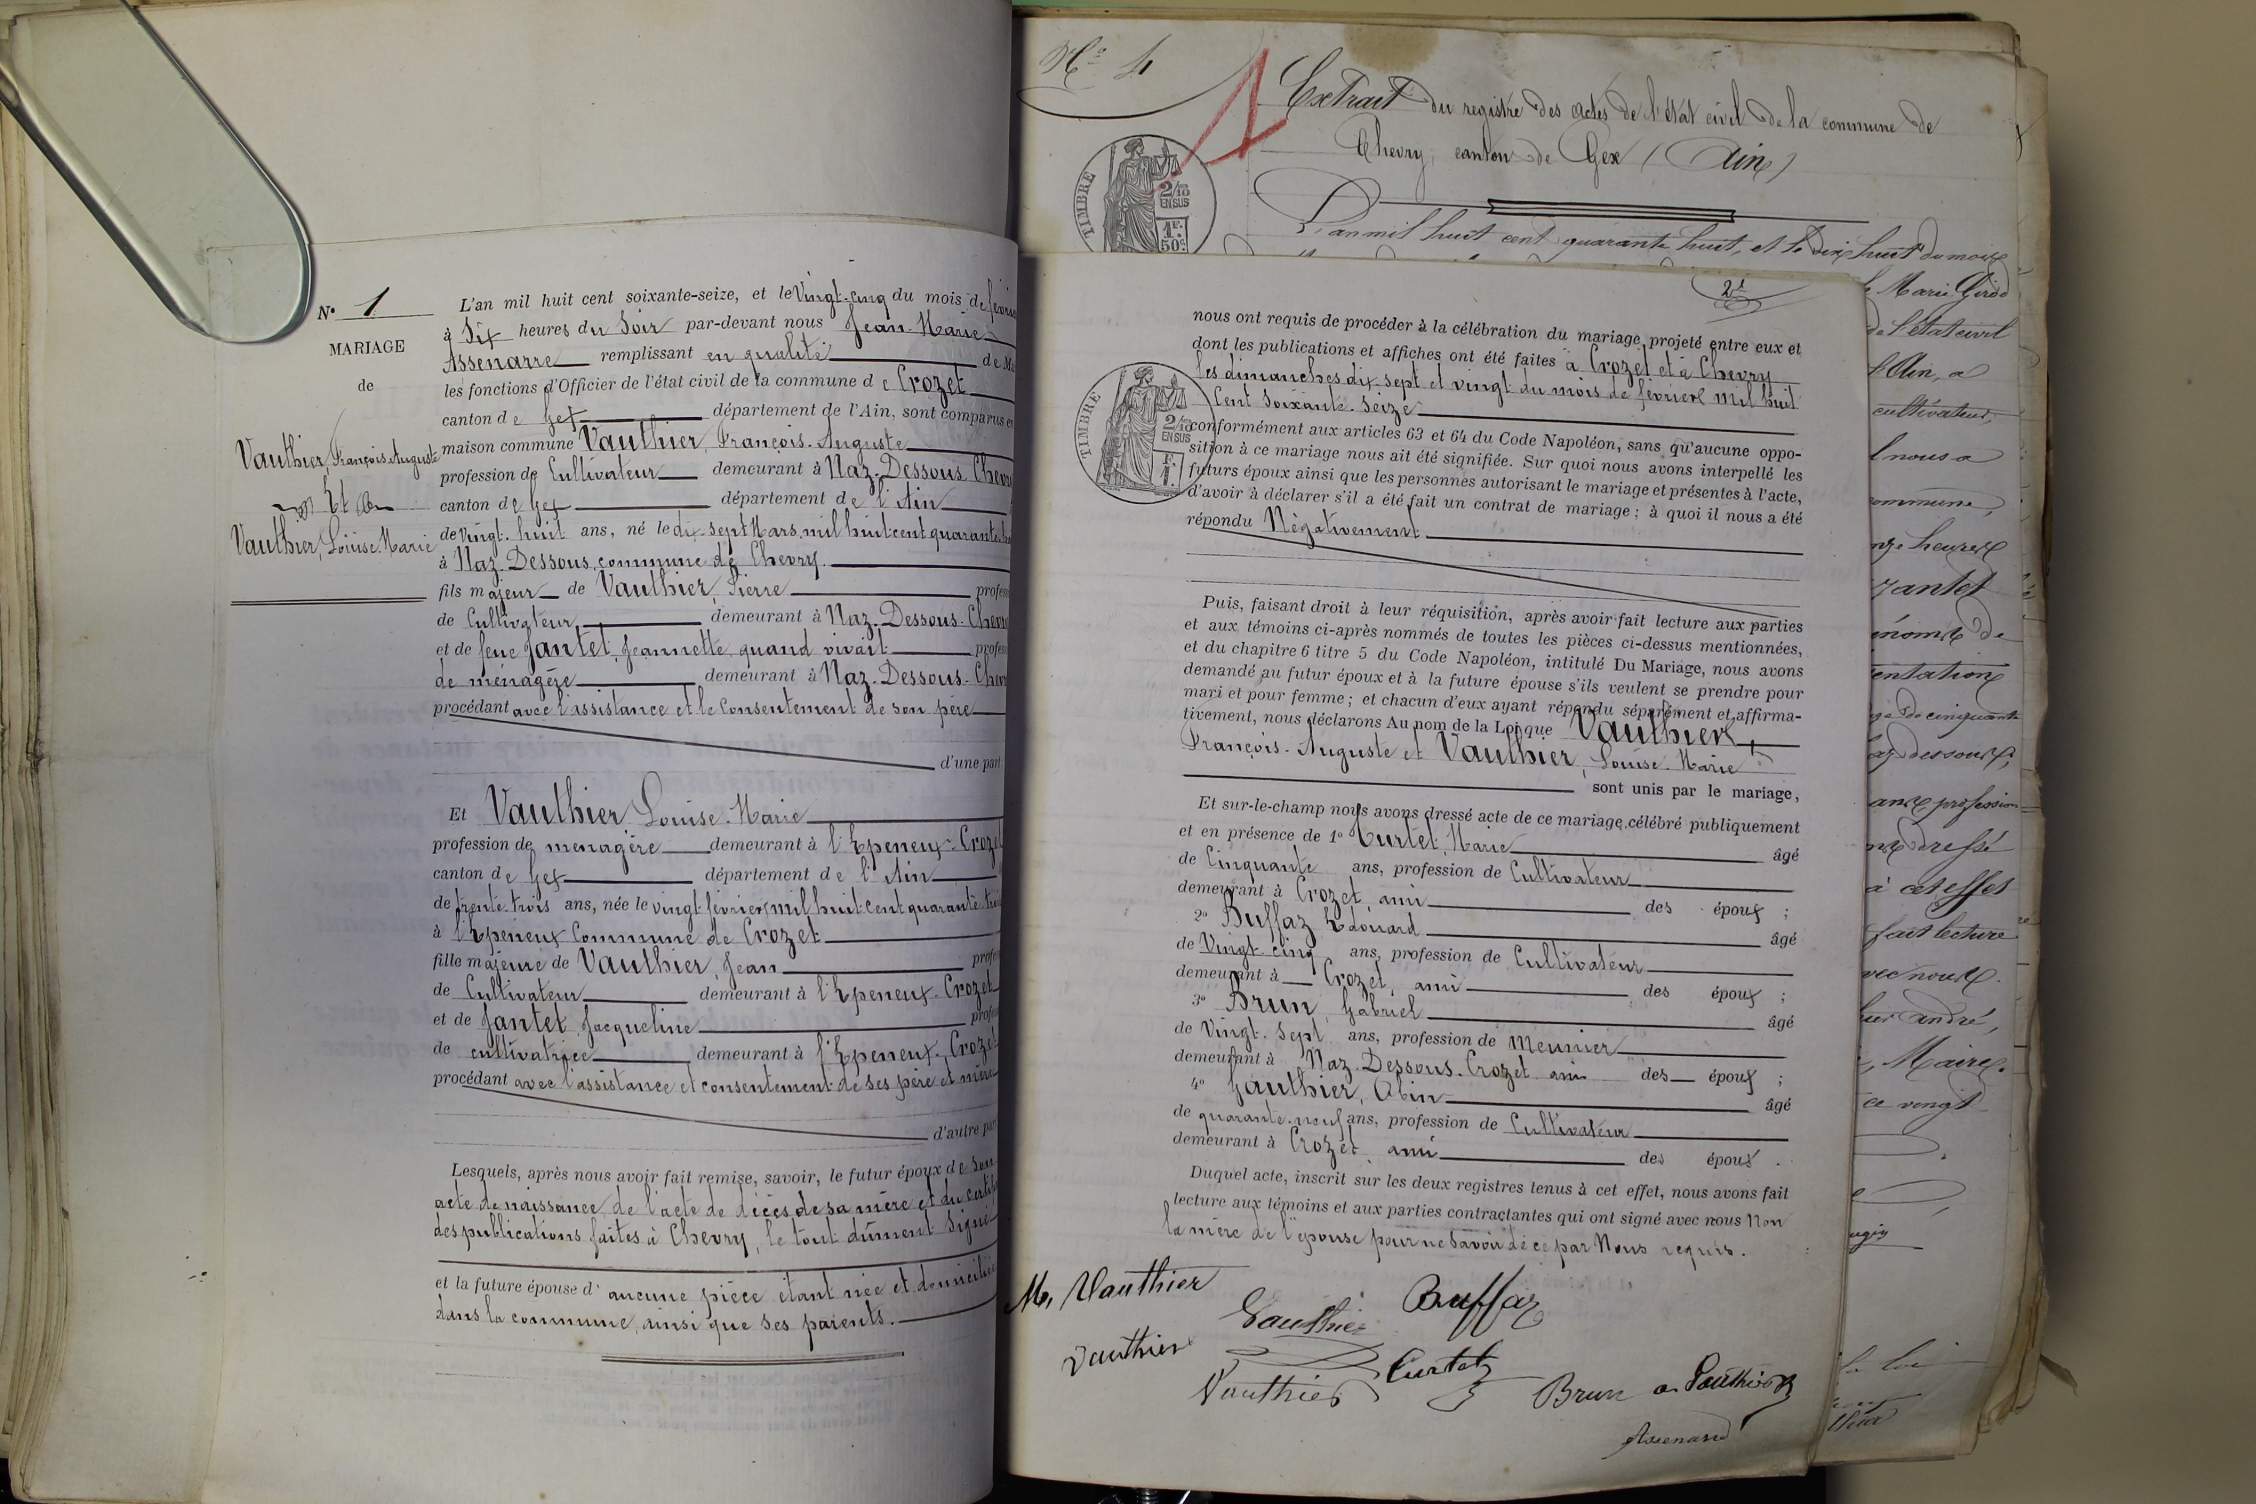 N° 1
MARIAGE
de
Vauthier, François Auguste
Et
Vauthier, Louise Marie
L'an mil huit cent soixante-seize, et le Vingt-cinq du mois de février
à Six heures du Soir par-devant nous Jean-Marie
Assenarre remplissant en qualité de
les fonctions d'Officier de l'état civil de la commune de Crozet
canton de Gex département de l'Ain, sont comparus en
maison commune Vauthier, François-Auguste
profession de Cultivateur demeurant à Naz-Dessous Chevry
canton de Gex département de l'Ain
de Vingt-huit ans, né le dix-sept Mars, mil huit cent quarante
à Naz-Dessous, commune de Chevry.
fils majeur de Vauthier, Pierre
de Cultivateur demeurant à Naz-Dessous-
et de feue Jantet, Jeannette, quand vivait
de ménagère demeurant à Naz-Dessous-
procédant avec l'assistance et le Consentement de son père
d'une part
Et Vauthier Louise-Marie
profession de menagère demeurant à l'Epeneux-Crozet
canton de Gex département de l'Ain
de trente-trois ans, née le vingt février mil huit cent quarante-
à l'Epeneux Commune de Crozet
fille majeure de Vauthier, Jean
de Cultivateur demeurant à l'Epeneux-Crozet
et de Jantet, Jacqueline
de cultivatrice demeurant à l'Epeneux-Crozet
procédant avec l'assistance et consentement de ses père et mère
d'autre part
Lesquels, après nous avoir fait remise, savoir, le futur époux de Son
acte de naissance, de l'acte de décès de sa mère et du
des publications faites à Chevry, le tout dûment Signé
et la future épouse d'aucune pièce étant née et domiciliée
dans la commune, ainsi que ses parents.
N° 4
1
Extrait du registre des actes de l'état civil de la commune de
Chevry, canton de Gex (Ain)
TIMBRE
2/10
EN SUS
1F.
50c.
L'an mil huit cent quarante huit, et le dix huit du mois
Marie Girod
de l'état civil
l'Ain, a
cultivateur,
nous a
commune,
heures
de
cinquante
profession
dressé
à cet effet
fait lecture
avec nous.
andré,
Maire.
ce vingt
la loi
2e
nous ont requis de procéder à la célébration du mariage projeté entre eux et
dont les publications et affiches ont été faites à Crozet et à Chevry
les dimanches dix sept et vingt du mois de février mil huit
Cent Soixante-Seize
TIMBRE
2/10
EN SUS
F.
1.
conformément aux articles 63 et 64 du Code Napoléon, sans qu'aucune oppo-
sition à ce mariage nous ait été signifiée. Sur quoi nous avons interpellé les
futurs époux ainsi que les personnes autorisant le mariage et présentes à l'acte,
d'avoir à déclarer s'il a été fait un contrat de mariage ; à quoi il nous a été
répondu Négativement
Puis, faisant droit à leur réquisition, après avoir fait lecture aux parties
et aux témoins ci-après nommés de toutes les pièces ci-dessus mentionnées,
et du chapitre 6 titre 5 du Code Napoléon, intitulé Du Mariage, nous avons
demandé au futur époux et à la future épouse s'ils veulent se prendre pour
mari et pour femme ; et chacun d'eux ayant répondu séparément et affirma-
tivement, nous déclarons Au nom de la Loi que Vauthier,
François-Auguste et Vauthier, Louise-Marie
sont unis par le mariage,
Et sur-le-champ nous avons dressé acte de ce mariage célébré publiquement
et en présence de 1° Curtet, Marie âgé
de Cinquante ans, profession de Cultivateur
demeurant à Crozet, ami des époux ;
2° Buffaz Edouard âgé
de Vingt-cinq ans, profession de Cultivateur
demeurant à Crozet, ami des époux ;
3° Brun, Gabriel âgé
de Vingt-Sept ans, profession de Meunier
demeurant à Naz-Dessous-Crozet ami des époux ;
4° Gauthier, Abin âgé
de quarante-neuf ans, profession de Cultivateur
demeurant à Crozet, ami des époux.
Duquel acte, inscrit sur les deux registres tenus à cet effet, nous avons fait
lecture aux témoins et aux parties contractantes qui ont signé avec nous Non
la mère de l'épouse pour ne Savoir de ce par Nous requis.
M, Vauthier
Gauthier
Buffaz
Vauthier
Curtet
Vauthier
Brun
Gauthier
Assenarre